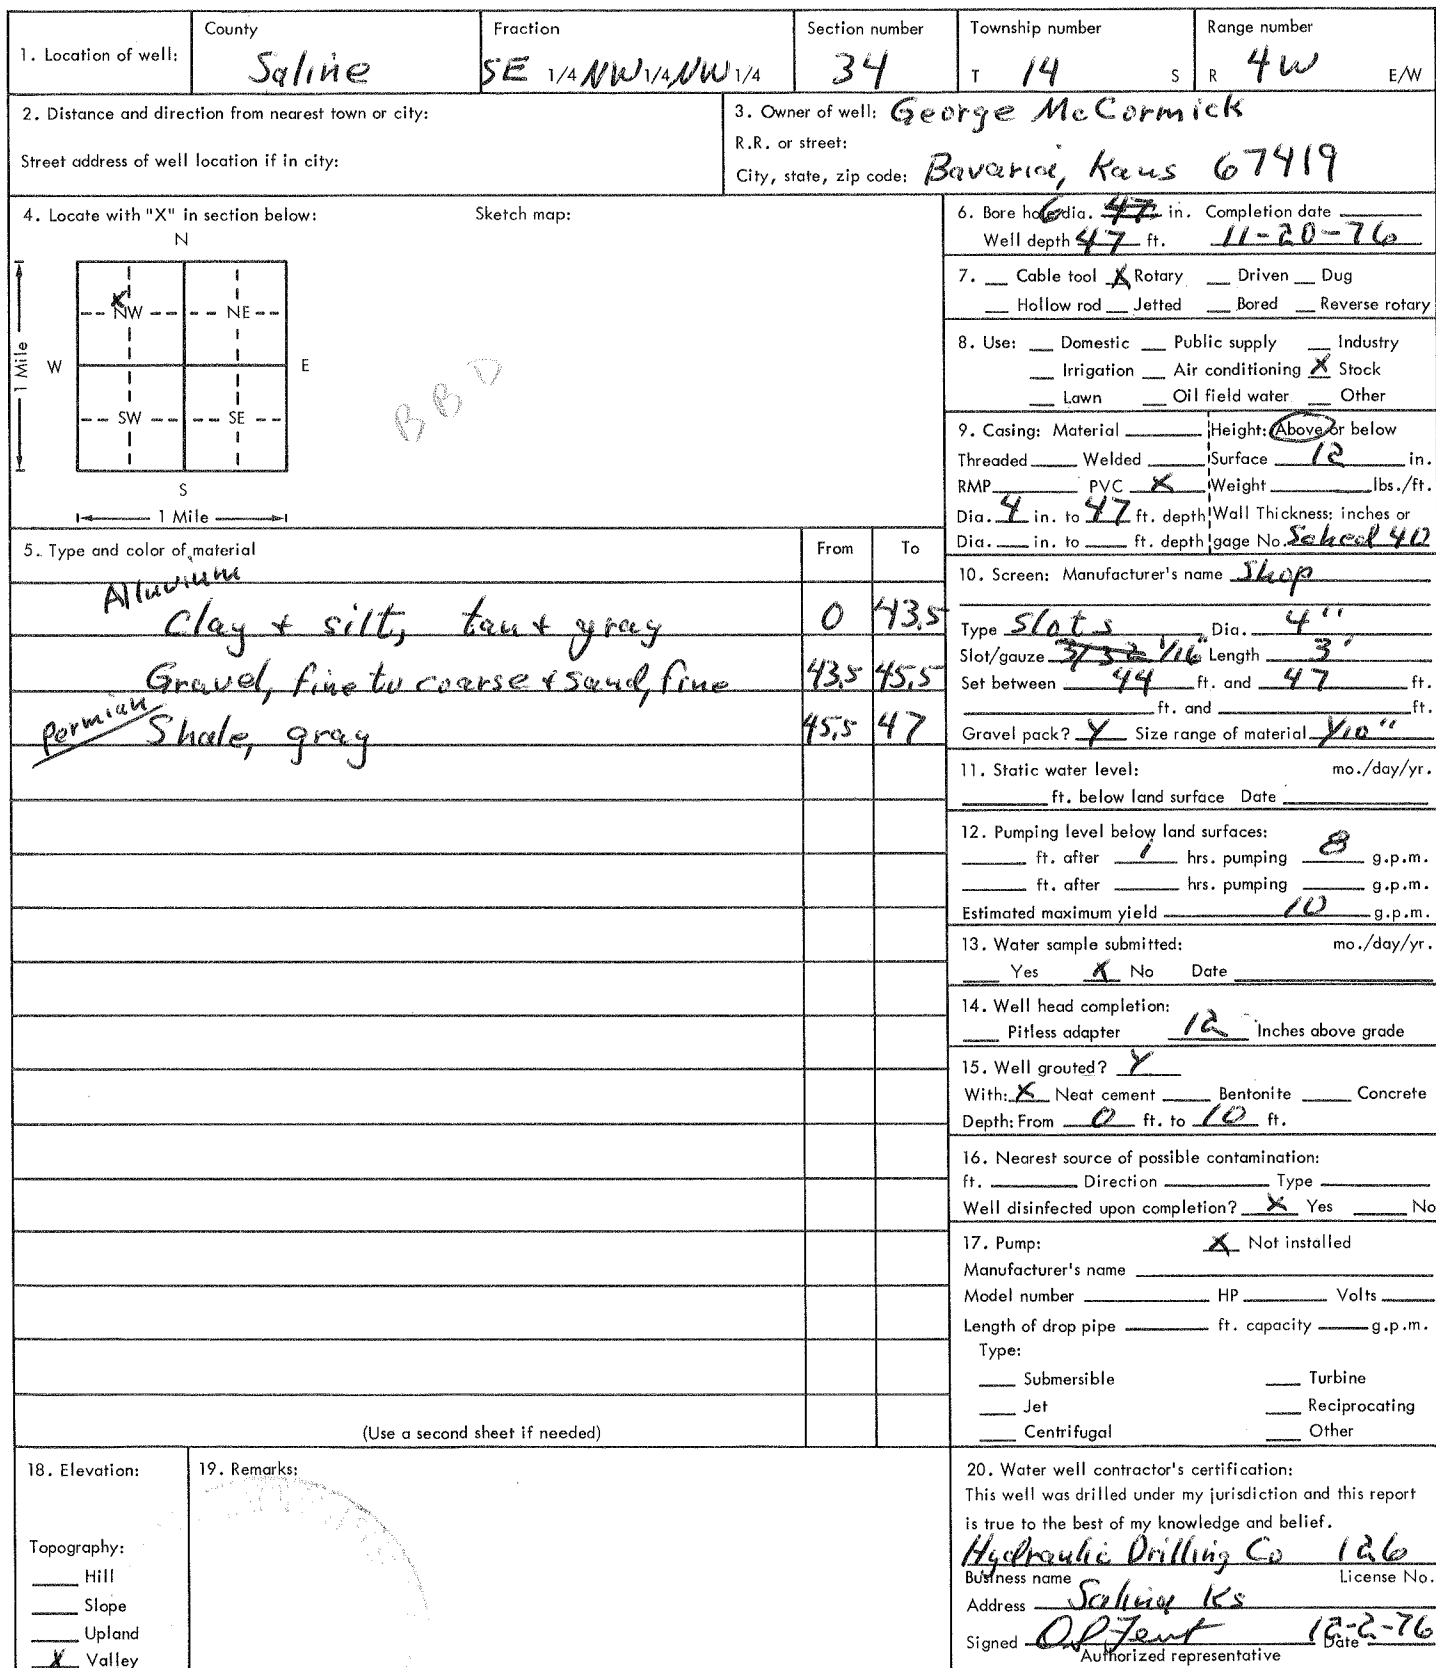 1. Location of well:
County
Saline
Fraction
SE 1/4 NW 1/4 NW 1/4
Section number
34
Township number
T 14 S
Range number
R 4W E/W
2. Distance and direction from nearest town or city:
Street address of well location if in city:
3. Owner of well: George McCormick
R.R. or street:
City, state, zip code: Bavaria, Kans 67419
4. Locate with "X" in section below:
Sketch map:
N
X
NW NE
W E
SW SE
S
1 Mile
1 Mile
BBD
5. Type and color of material From To
Alluvium
Clay + silt, tan + gray 0 43.5
Gravel, fine to coarse + sand, fine 43.5 45.5
Permian Shale, gray 45.5 47
(Use a second sheet if needed)
6. Bore hole dia. 6 47 in. Completion date
Well depth 47 ft. 11-20-76
7. __ Cable tool X Rotary __ Driven __ Dug
__ Hollow rod __ Jetted __ Bored __ Reverse rotary
8. Use: __ Domestic __ Public supply __ Industry
__ Irrigation __ Air conditioning X Stock
__ Lawn __ Oil field water __ Other
9. Casing: Material ____ Height: Above or below
Threaded ____ Welded ____ Surface 12 in.
RMP ____ PVC X Weight ____ lbs./ft.
Dia. 4 in. to 47 ft. depth Wall Thickness: inches or
Dia. __ in. to __ ft. depth gage No. Sched 40
10. Screen: Manufacturer's name Shop
Type Slots Dia. 4"
Slot/gauze 3/32 1/16" Length 3'
Set between 44 ft. and 47 ft.
____ ft. and ____ ft.
Gravel pack? Y Size range of material 1/10"
11. Static water level: mo./day/yr.
____ ft. below land surface Date ____
12. Pumping level below land surfaces:
____ ft. after 1 hrs. pumping 8 g.p.m.
____ ft. after ____ hrs. pumping ____ g.p.m.
Estimated maximum yield 10 g.p.m.
13. Water sample submitted: mo./day/yr.
__ Yes X No Date ____
14. Well head completion:
__ Pitless adapter 12 Inches above grade
15. Well grouted? Y
With: X Neat cement ____ Bentonite ____ Concrete
Depth: From 0 ft. to 10 ft.
16. Nearest source of possible contamination:
ft. ____ Direction ____ Type ____
Well disinfected upon completion? X Yes ____ No
17. Pump: X Not installed
Manufacturer's name ____
Model number ____ HP ____ Volts ____
Length of drop pipe ____ ft. capacity ____ g.p.m.
Type:
__ Submersible __ Turbine
__ Jet __ Reciprocating
__ Centrifugal __ Other
18. Elevation:
Topography:
__ Hill
__ Slope
__ Upland
X Valley
19. Remarks:
20. Water well contractor's certification:
This well was drilled under my jurisdiction and this report
is true to the best of my knowledge and belief.
Hydraulic Drilling Co 126
Business name License No.
Address Salina Ks
Signed O.S. Fent 12-2-76
Date
Authorized representative